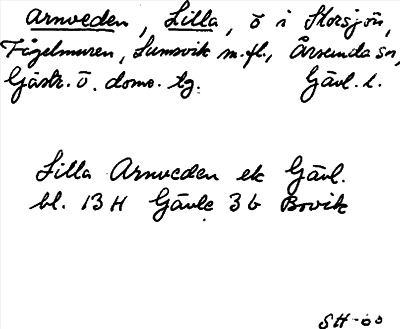 Arnveden, Lilla, ö i Storsjön,
Fågelmuren, Lumsvik m.fl., Årsunda sn,
Gästr. ö. doms. tg. Gävl. l.
Lilla Arnveden ek Gävl.
bl. 13 H Gävle 3 b Bovik
SH -60